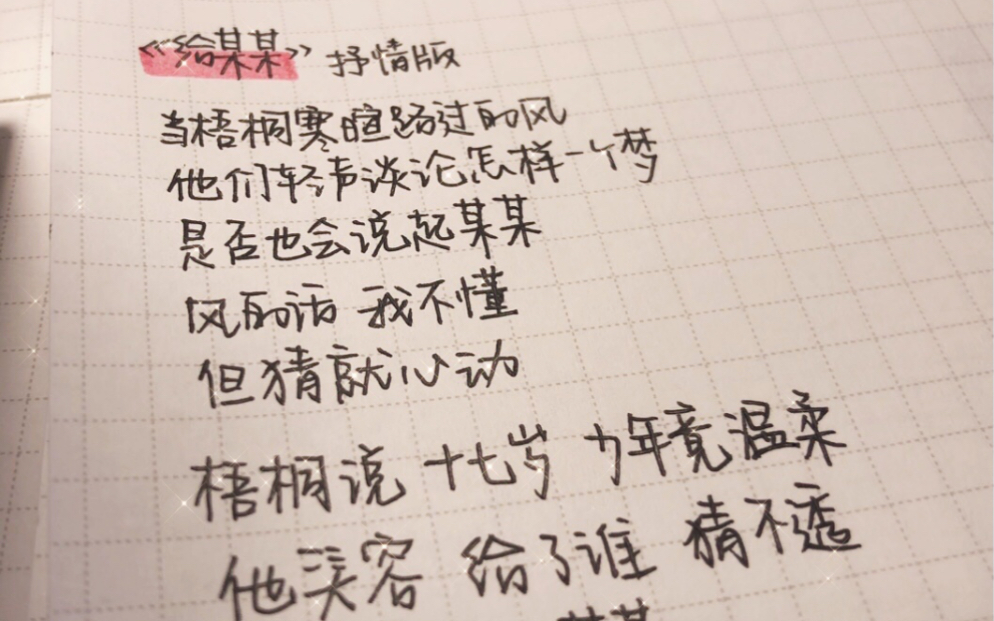 《给某某》 抒情版
当梧桐寒暄路过的风
他们轻声谈论怎样一个梦
是否也会说起某某
风的话 我不懂
但猜就心动
梧桐说 十七岁 少年竟温柔
他笑容 给了谁 猜不透